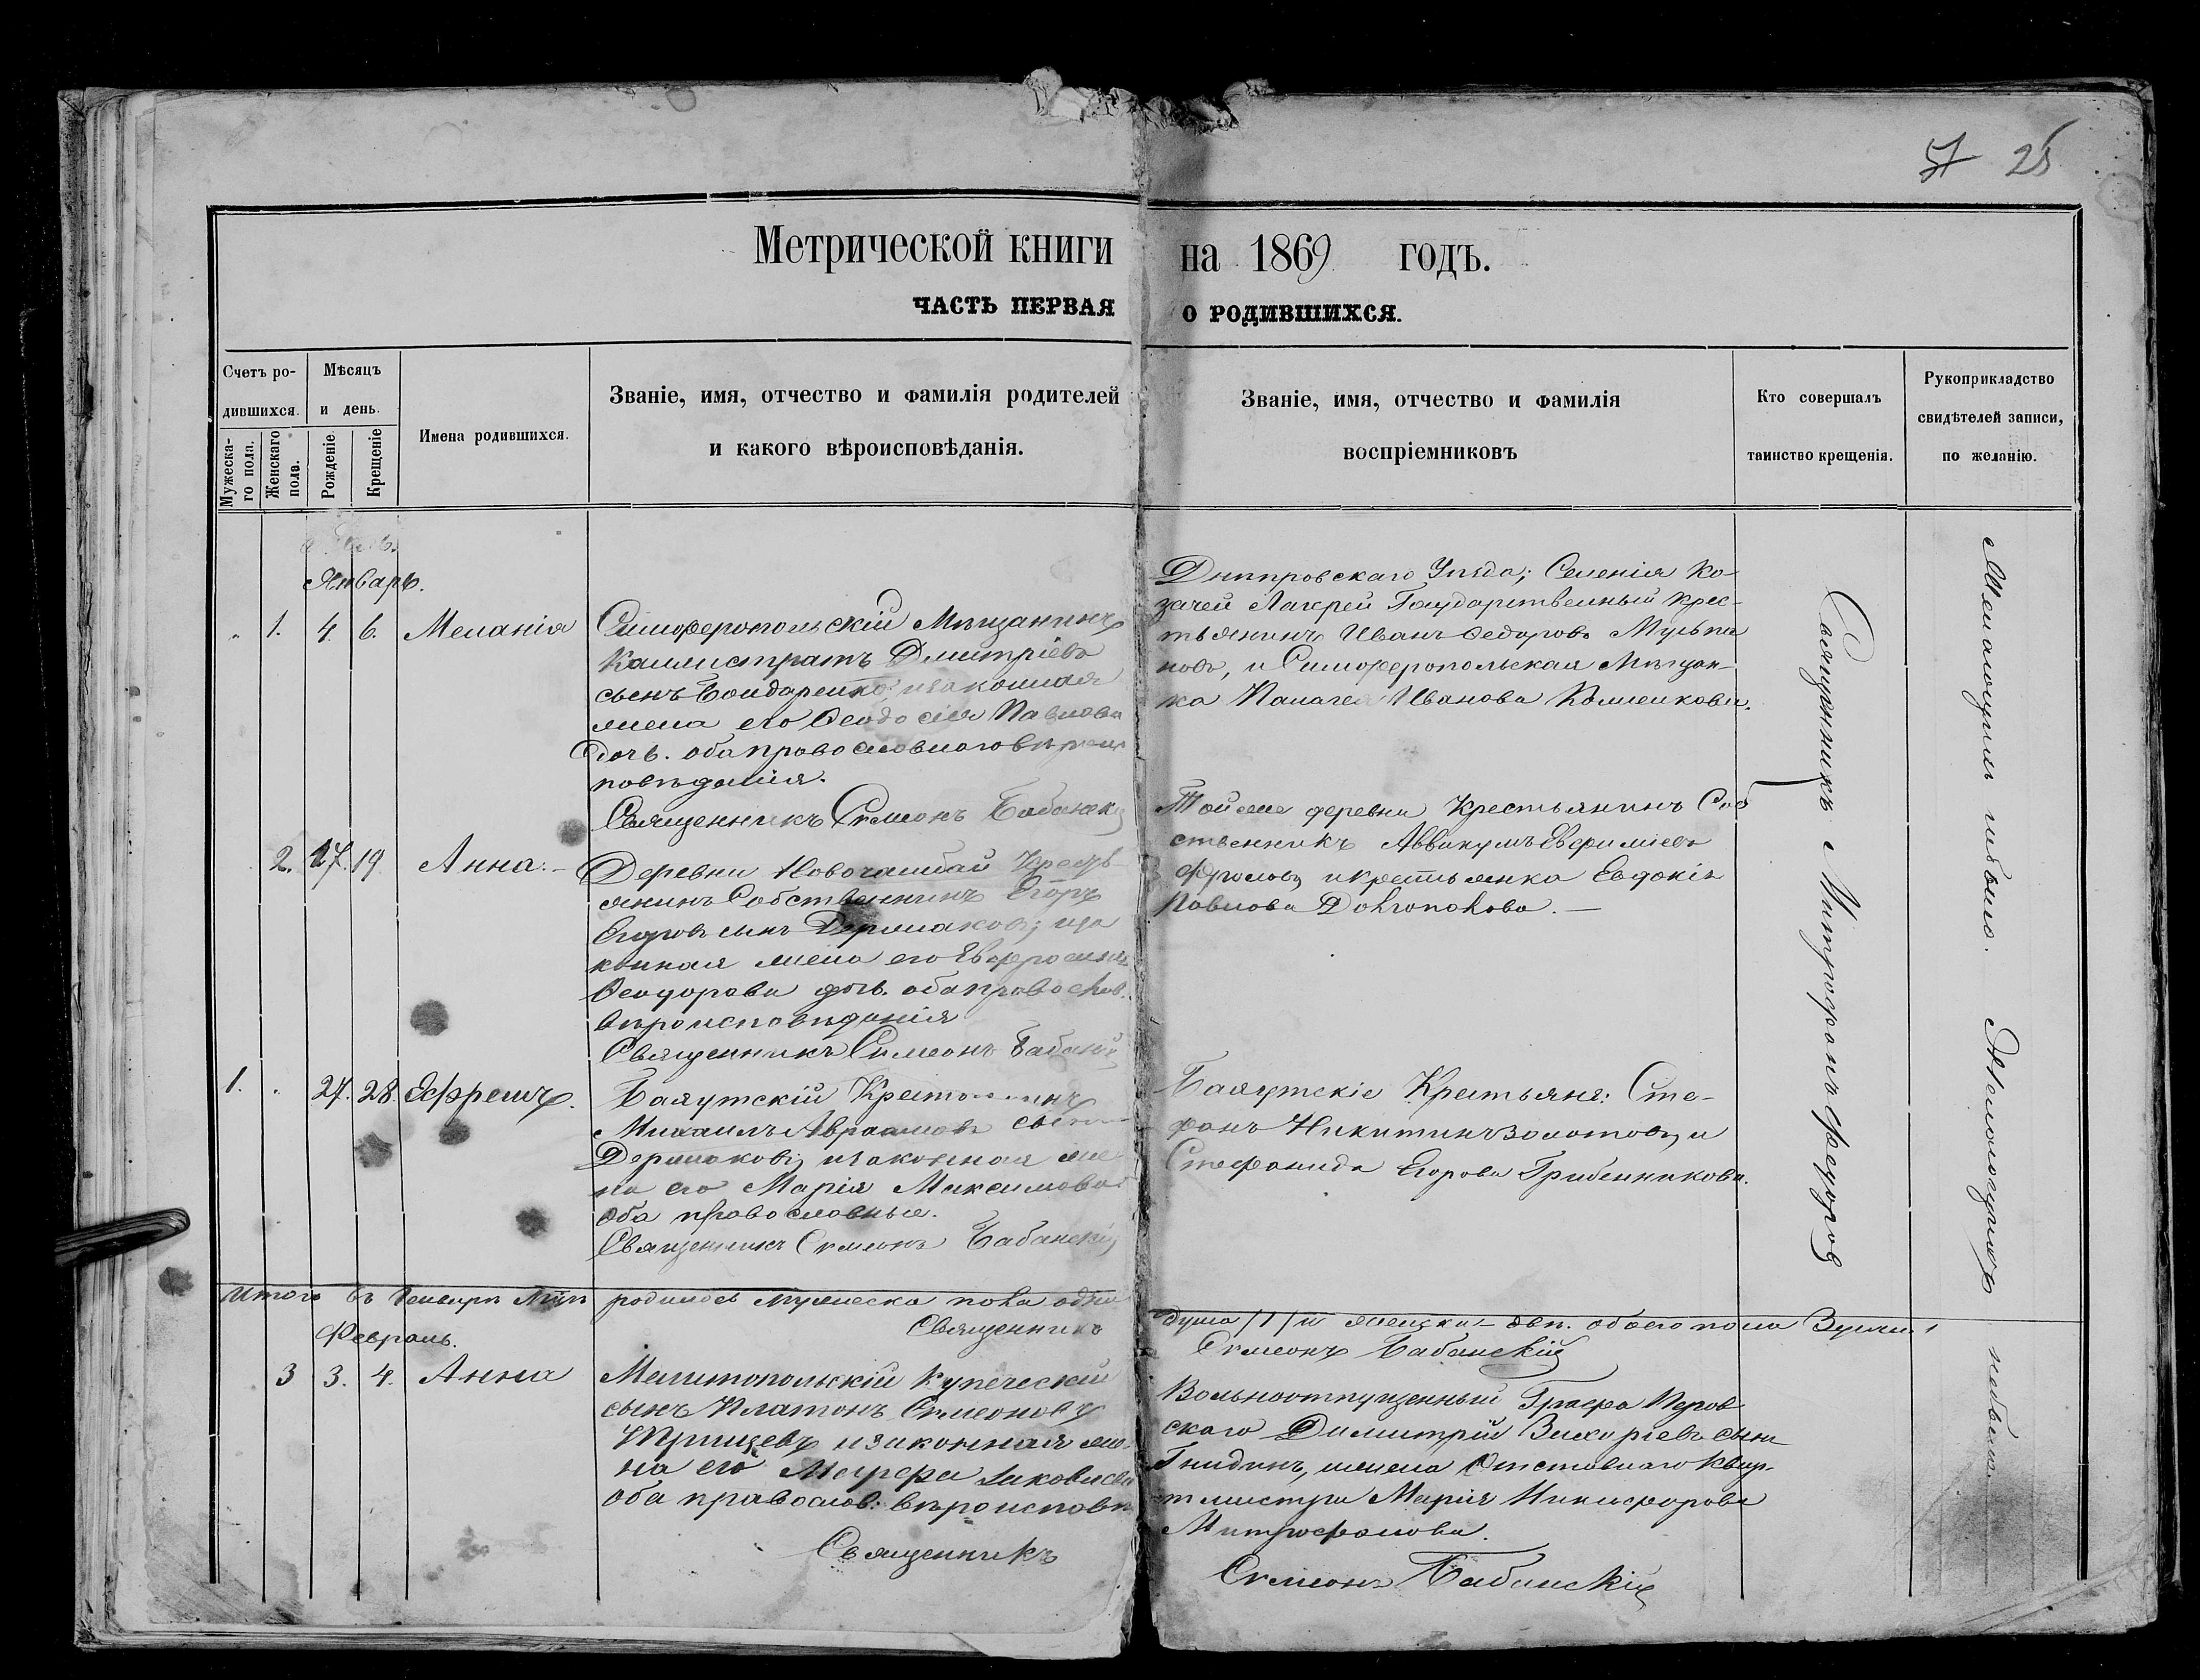 57 25
Метрической книги на 1869 годъ.
ЧАСТЬ ПЕРВАЯ О РОДИВШИХСЯ.
Счетъ ро-
дившихся.
Мужеска-
го пола.
Женскаго
пола.
Мѣсяцъ
и день.
Рожденіе.
Крещеніе
Имена родившихся.
Званіе, имя, отчество и фамилія родителей
и какого вѣроисповѣданія.
Званіе, имя, отчество и фамилія
воспріемниковъ
Кто совершалъ
таинство крещенія.
Рукоприкладство
свидѣтелей записи,
по желанію.
Январь.
1. 4. 6. Меланія
Симферопольскій Мѣщанинъ
Каллистратъ Дмитріевъ
сынъ Бондаренко изаконная
жена его Феодосія Павлова
дочь. оба православнаго вѣроис
повѣданія.
Священникъ Симеонъ Бабанскій
Днѣпровскаго Уѣзда; Селенія Ко-
зачей Лагерей Государственный крес-
тьянинъ Иванъ Федоровъ
новъ, и Симферопольская Мѣщан-
ка Палагея Иванова
2. 17. 19 Анна. -
Деревни Крестъ-
янинъ Собственникъ Егоръ
Егоровъ сынъ Дермаковъ; иза
конная жена его Евфросинія
Феодорова дочь. оба православ.
вѣроисповѣданія
Священникъ Симеонъ Бабанскі
Той же деревни Крестьянинъ Соб
ственникъ Аввакумъ Евфиміевъ
Фроловъ икрестьянка Евдокія
Павлова Долгополова. —
1. 27. 28. Ефремъ.
Баяутскій
Михаилъ Авраамовъ сынъ
Дермаковъ; изаконная же
на его Марія Максимова
оба православные.
Священникъ Симеонъ Бабанскій
Баяутскіе Крестьяне: Сте-
фанъ Никитинъ Золотовъ, и
Стефанида Егорова Гребенникова.
Итого въ Генварѣ М-цѣ родилось мужеска пола одна душа /1/ и женска - двѣ. обоего пола 3 души
Священникъ Симеонъ Бабанскій
Февраль.
3 3. 4. Анна
Мелитопольскій Купеческій
сынъ Платонъ Симеоновъ
изаконная же-
на его Іаковлева
оба православ. вѣроисповѣ
Священникъ
Вольноотпущенный Графа Перов
скаго Димитрій сынъ
Гнидинъ, и жена Отставнаго Квар-
тмистра Марія Никифорова
Митрофанова.
Симеонъ Бабанскій
Священникъ Митрофанъ Федоровъ
Псаломщикъ небыло.